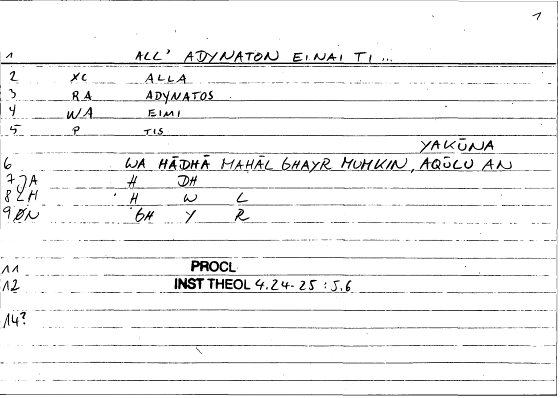 1
1 ALL' ADYNATON EINAI TI ...
2 XC ALLA
3 RA ADYNATOS
4 WA EIMI
5 P TIS
YAKŪNA
6 WA HĀDHĀ MAHĀL GHAYR MUMKIN, AQŪLU AN
7 JA H DH
8 LH H W L
9 ØN GH Y R
11 PROCL
12 INST THEOL 4.24-25 : 5.6
14?